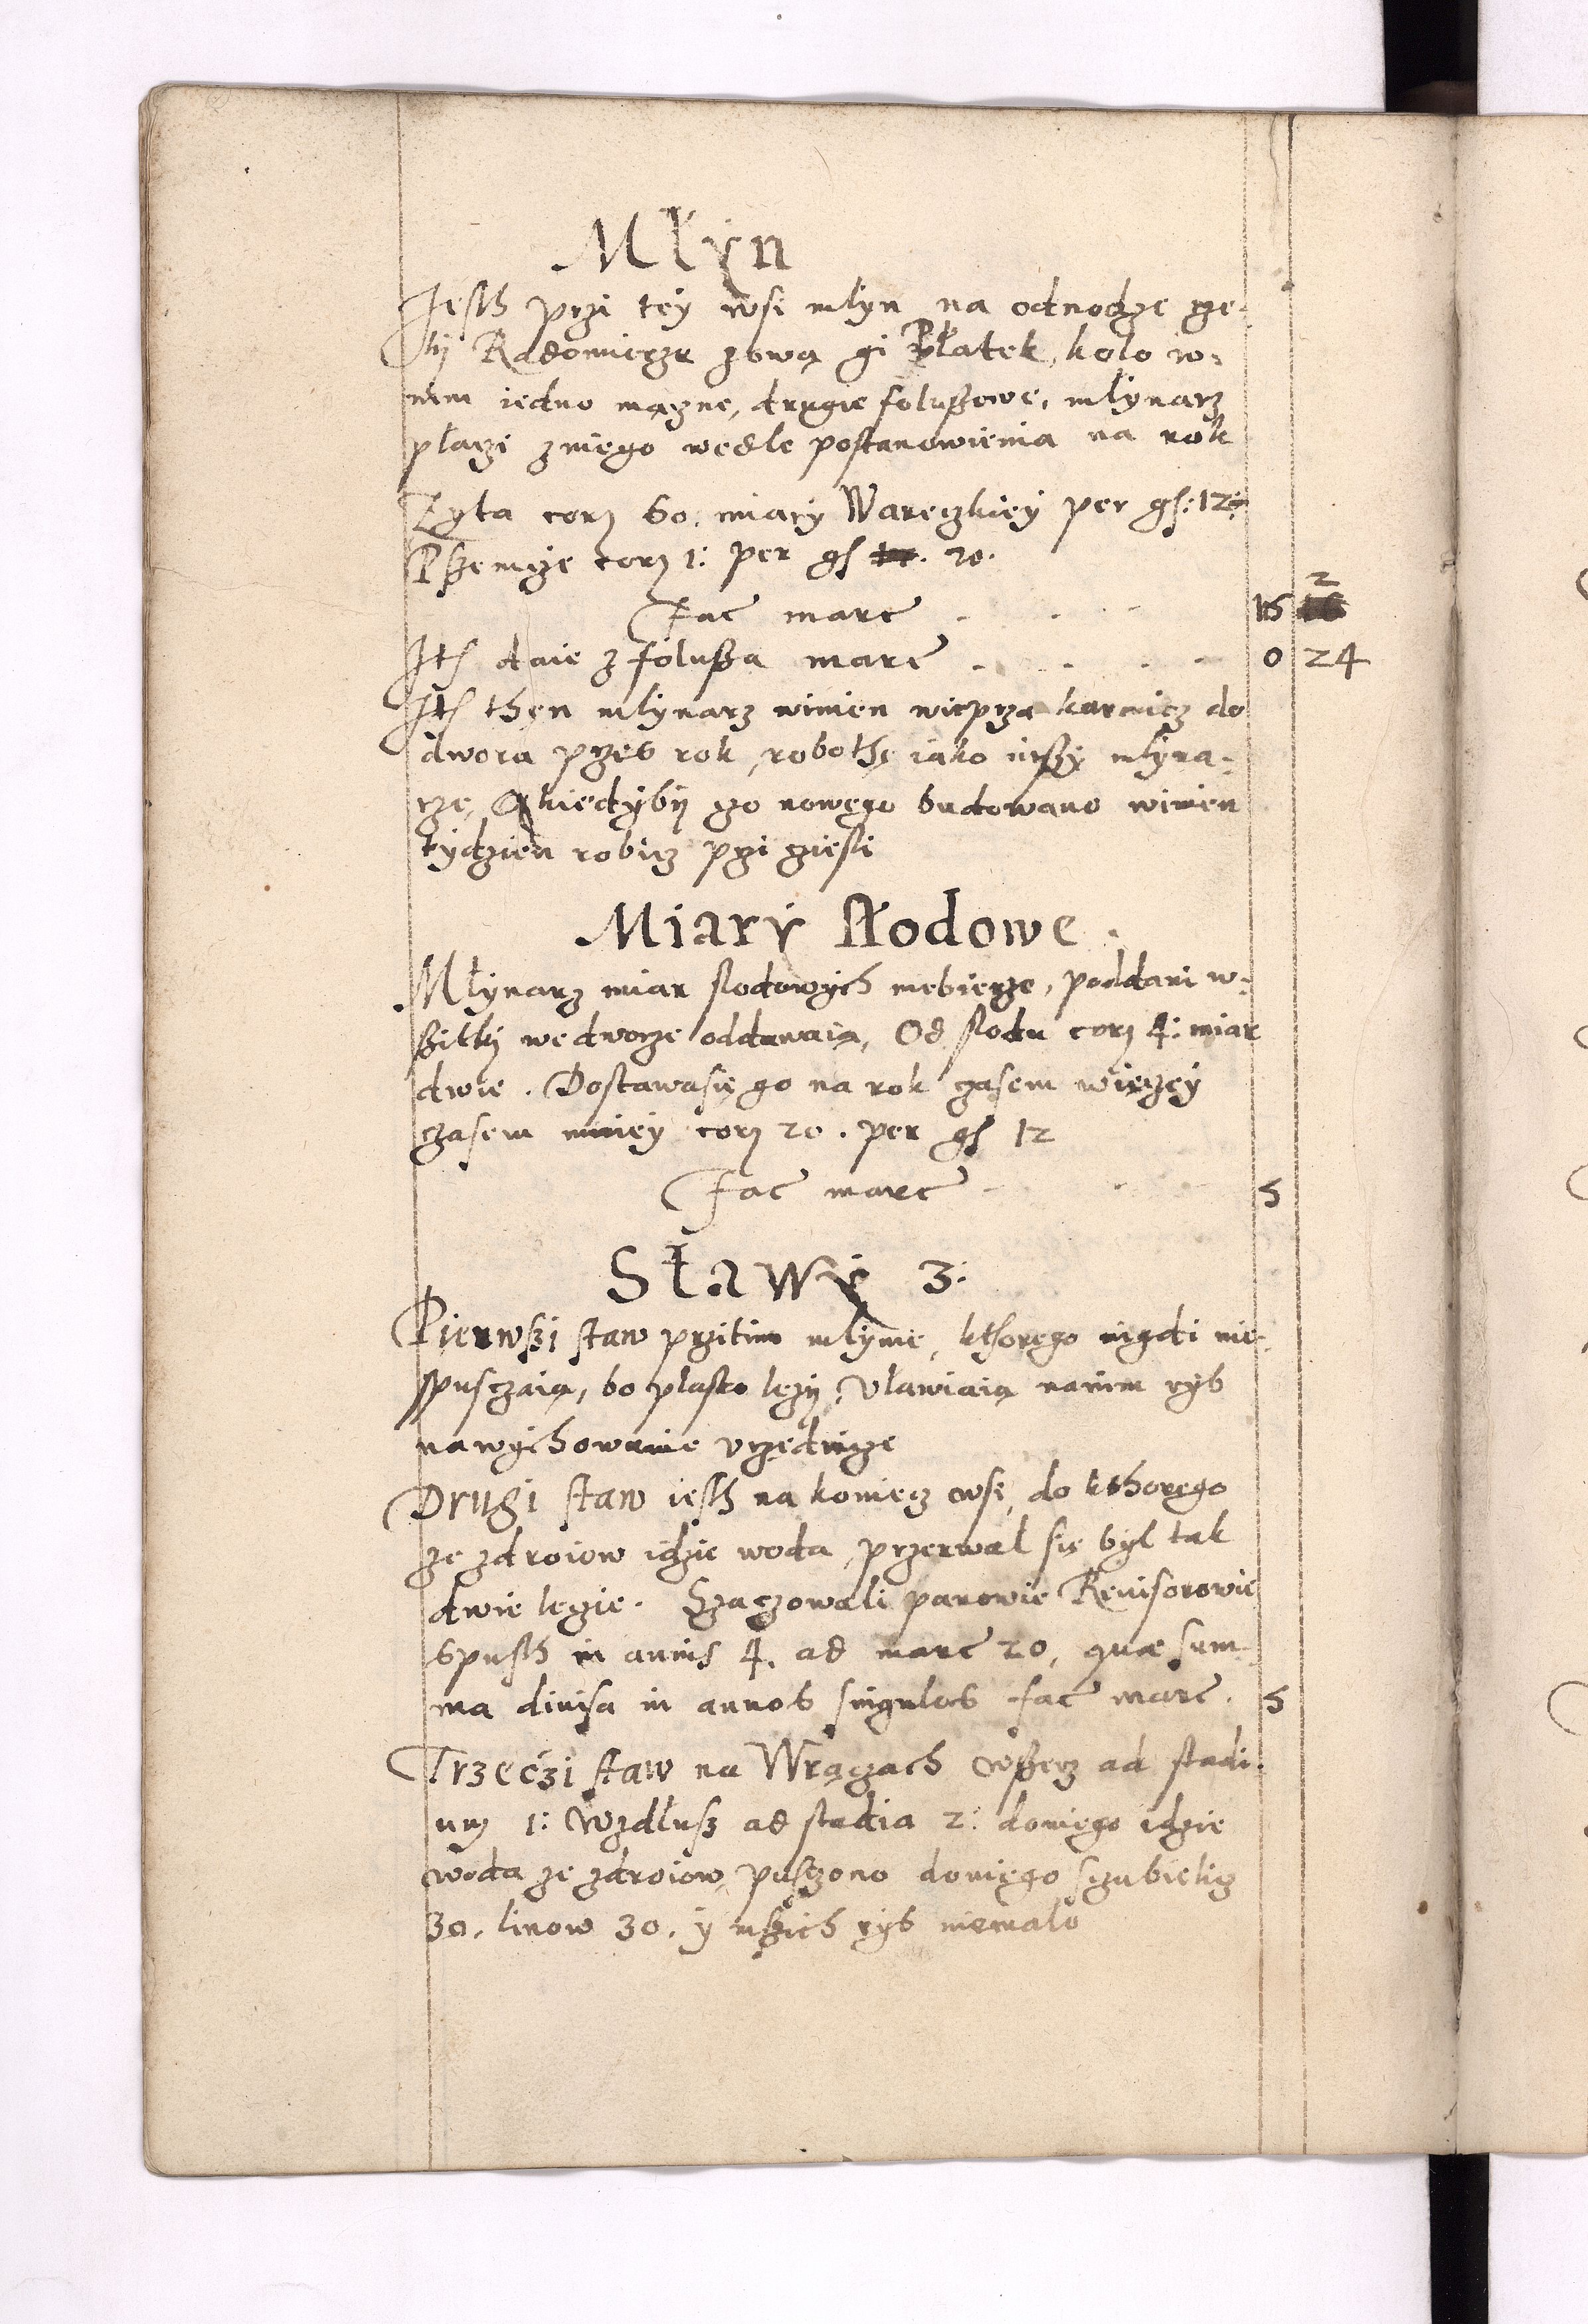 Młyn
Jesth przi tey wsi mlyn na odnodze rze-
ki Radomierze zową gi Płatek, kolo w-
nim iedno mączne, drugie foluszowe, mlynarz
placzi zniego wedle postanowienia na rok
Zyta corz 60. miary Wareczkiey per gs: 12.
Pszenicze corz 1: per gs 20.
Fac marc 15 2
Jts daie z folusza marc 0 24
Jts then mlynarz winien wieprza karmicz do
dwora przes rok, robothę iako inszy mlyna-
rze, A kiedyby go nowego budowano winien
tydzien robicz przi cziesli
Miary słodowe.
Młynarz miar slodowych niebierze, poddani w-
szitky we dworze oddawaią, Od slodu corz 4: miar
dwie. Dostawa się go na rok czasem więczey
czasem mniey corz 20. per gs 12
Fac marc 5
Stawy 3:
Pierwszi staw przitim mlynie, kthorego nigdi nie-
spusczaią, bo plasko lezy, Vlawiaią nanim ryb
nawychowanie vrzędnicze
Drugi staw iesth na koniecz wsi, do kthorego
ze zdroiow idzie woda, przerwal się byl tak
dwie lecie. Szaczowali panowie Reuisorowie
spusth in annis 4. ad marc 20, quae sum-
ma diuisa in annos singulos fac marc. 5
Trzeczi staw na Wrączach wszerz ad stadi-
um 1: Wzdlusz ad stadia 2: doniego idzie
woda ze zdroiow, pusczono doniego sczubielicz
30. linow 30. y inszich ryb niemalo